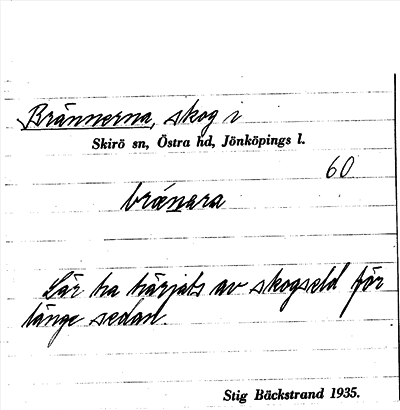 Brännerna, skog i
Skirö sn, Östra hd, Jönköpings l.
60
brä́nara
Lär ha härjats av skogseld för
länge sedan.
Stig Bäckstrand 1935.